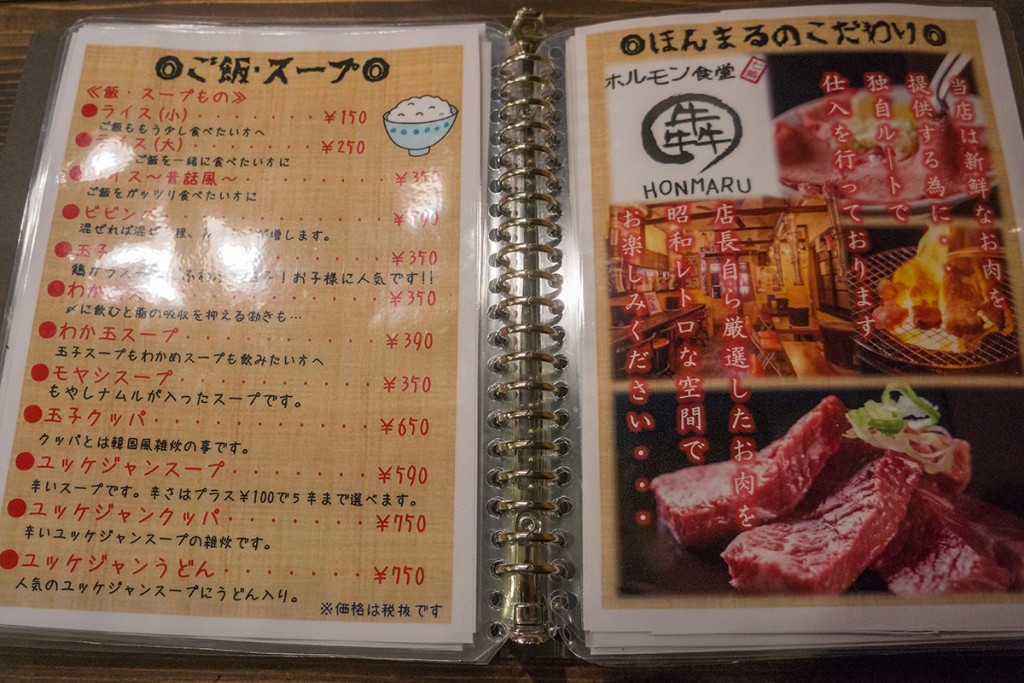 ◎ご飯・スープ◎
≪飯・スープもの≫
●ライス(小)・・・・・・・・¥150
ご飯ももう少し食べたい方へ
ス(大)・・・・・・・・¥250
ご飯を一緒に食べたい方に
イス〜昔話風〜・・・・・・・¥35
ご飯をガッツリ食べたい方に
●ビビン
混ぜれば混ぜ 増します。
●玉子 ¥350
お子様に人気です!!
●わか ¥350
〆に飲むと脂の吸収を抑える働きも…
●わか玉スープ・・・・・・・・¥390
玉子スープもわかめスープも飲みたい方へ
●モヤシスープ・・・・・・・・¥350
もやしナムルが入ったスープです。
●玉子クッパ・・・・・・・・・¥650
クッパとは韓国風雑炊の事です。
●ユッケジャンスープ・・・・・・¥590
辛いスープです。辛さはプラス¥100で5辛まで選べます。
●ユッケジャンクッパ・・・・・・¥750
辛いユッケジャンスープの雑炊です。
●ユッケジャンうどん・・・・・・・¥750
人気のユッケジャンスープにうどん入り。
※価格は税抜です
◎ほんまるのこだわり◎
ホルモン食堂
犇
HONMARU
当店は新鮮なお肉を
提供する為に、
独自ルートで
仕入を行っております
店長自ら厳選したお肉を
昭和レトロな空間で
お楽しみください・・・